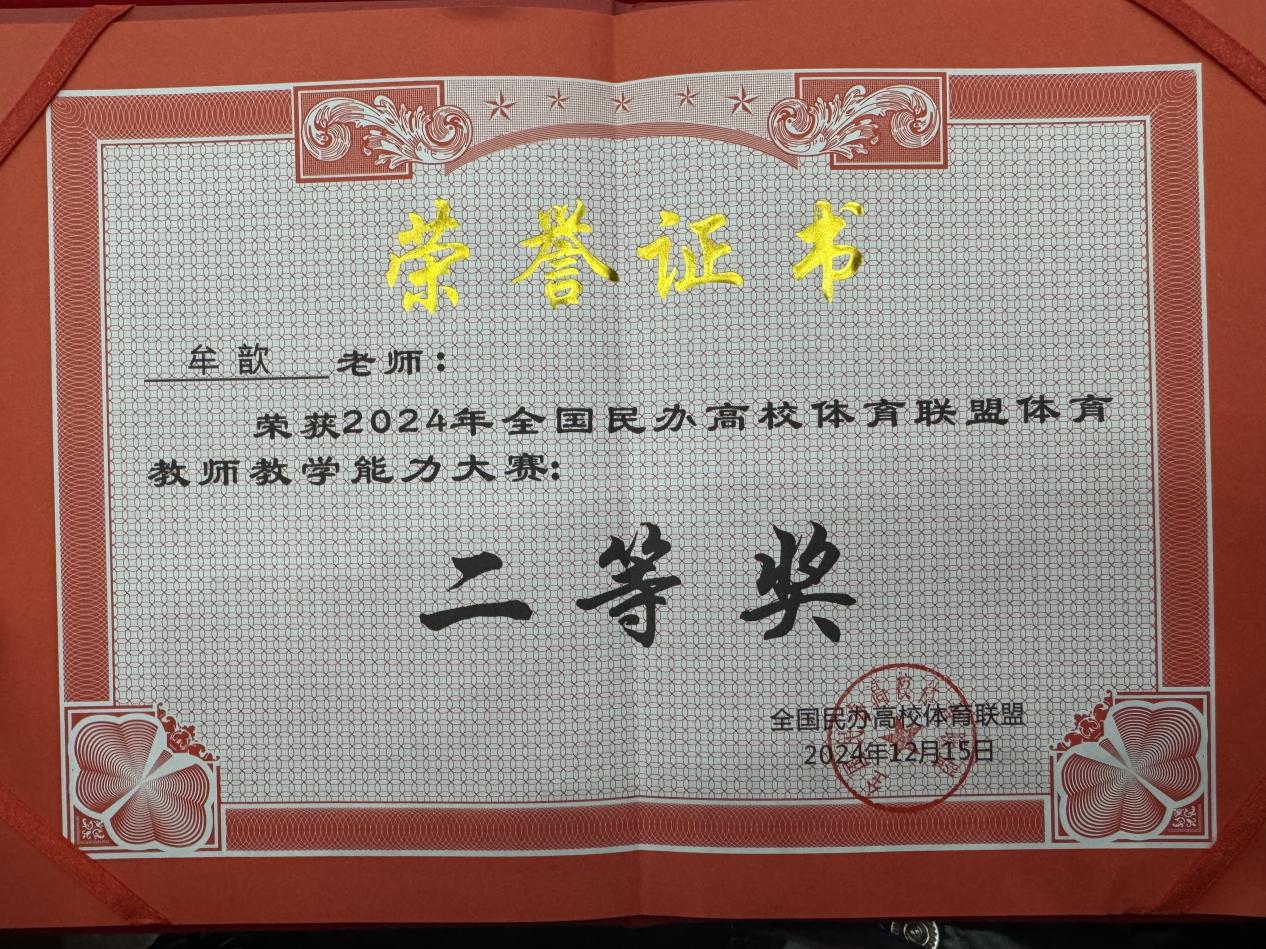 荣誉证书
牟歆 老师：
荣获2024年全国民办高校体育联盟体育
教师教学能力大赛:
二等奖
全国民办高校体育联盟
2024年12月15日
全国民办高校体育联盟